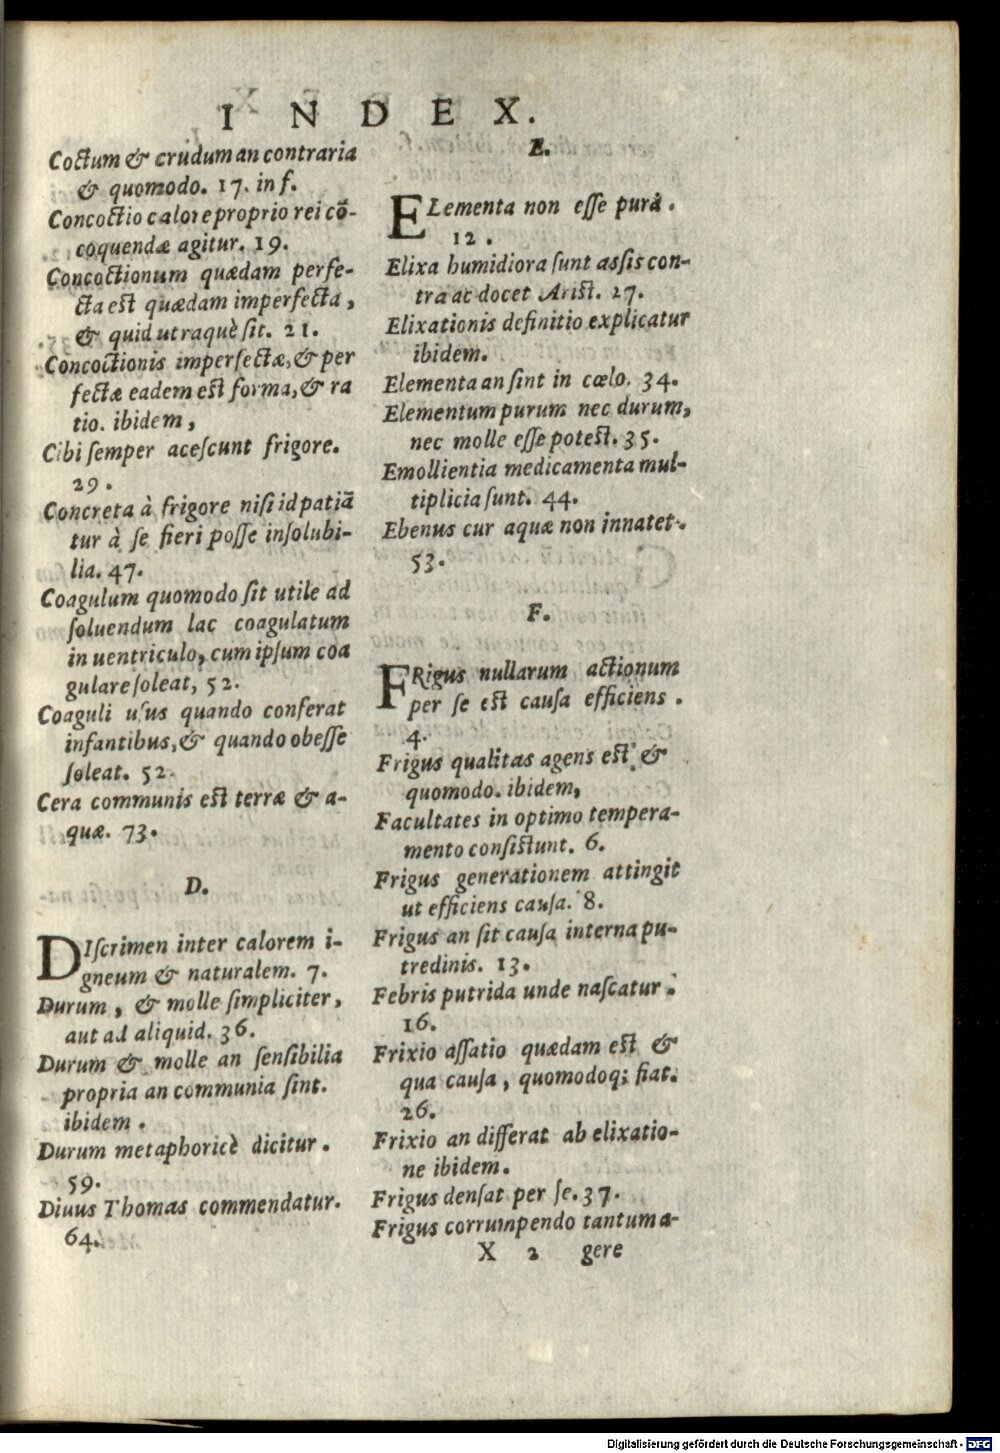 INDEX.
Coctum & crudum an contraria
& quomodo. 17. in f.
Concoctio calore proprio rei cō-
coquendæ agitur. 19.
Concoctionum quædam perfe-
cta est quædam imperfecta,
& quid utraquè sit. 21.
Concoctionis imperfectæ, & per
fectæ eadem est forma, & ra
tio. ibidem,
Cibi semper acescunt frigore.
29.
Concreta à frigore nisi id patiā
tur à se fieri posse insolubi-
lia. 47.
Coagulum quomodo sit utile ad
soluendum lac coagulatum
in uentriculo, cum ipsum coa
gulare soleat, 52.
Coaguli usus quando conferat
infantibus, & quando obesse
soleat. 52.
Cera communis est terræ & a-
quæ. 73.
D.
DIscrimen inter calorem i-
gneum & naturalem. 7.
Durum, & molle simpliciter,
aut ad aliquid. 36.
Durum & molle an sensibilia
propria an communia sint.
ibidem.
Durum metaphoricè dicitur.
59.
Diuus Thomas commendatur.
64.
E.
ELementa non esse pura.
12.
Elixa humidiora sunt assis con-
tra ac docet Arist. 27.
Elixationis definitio explicatur
ibidem.
Elementa an sint in cœlo. 34.
Elementum purum nec durum,
nec molle esse potest. 35.
Emollientia medicamenta mul-
tiplicia sunt. 44.
Ebenus cur aquæ non innatet.
53.
F.
FRigus nullarum actionum
per se est causa efficiens.
4.
Frigus qualitas agens est & 
quomodo. ibidem,
Facultates in optimo tempera-
mento consistunt. 6.
Frigus generationem attingit
ut efficiens causa. 8.
Frigus an sit causa interna pu-
tredinis. 13.
Febris putrida unde nascatur.
16.
Frixio assatio quædam est &
qua causa, quomodoq; fiat.
26.
Frixio an differat ab elixatio-
ne ibidem.
Frigus densat per se. 37.
Frigus corrumpendo tantum a-
X 2 gere
Digitalisierung gefördert durch die Deutsche Forschungsgemeinschaft - DFG